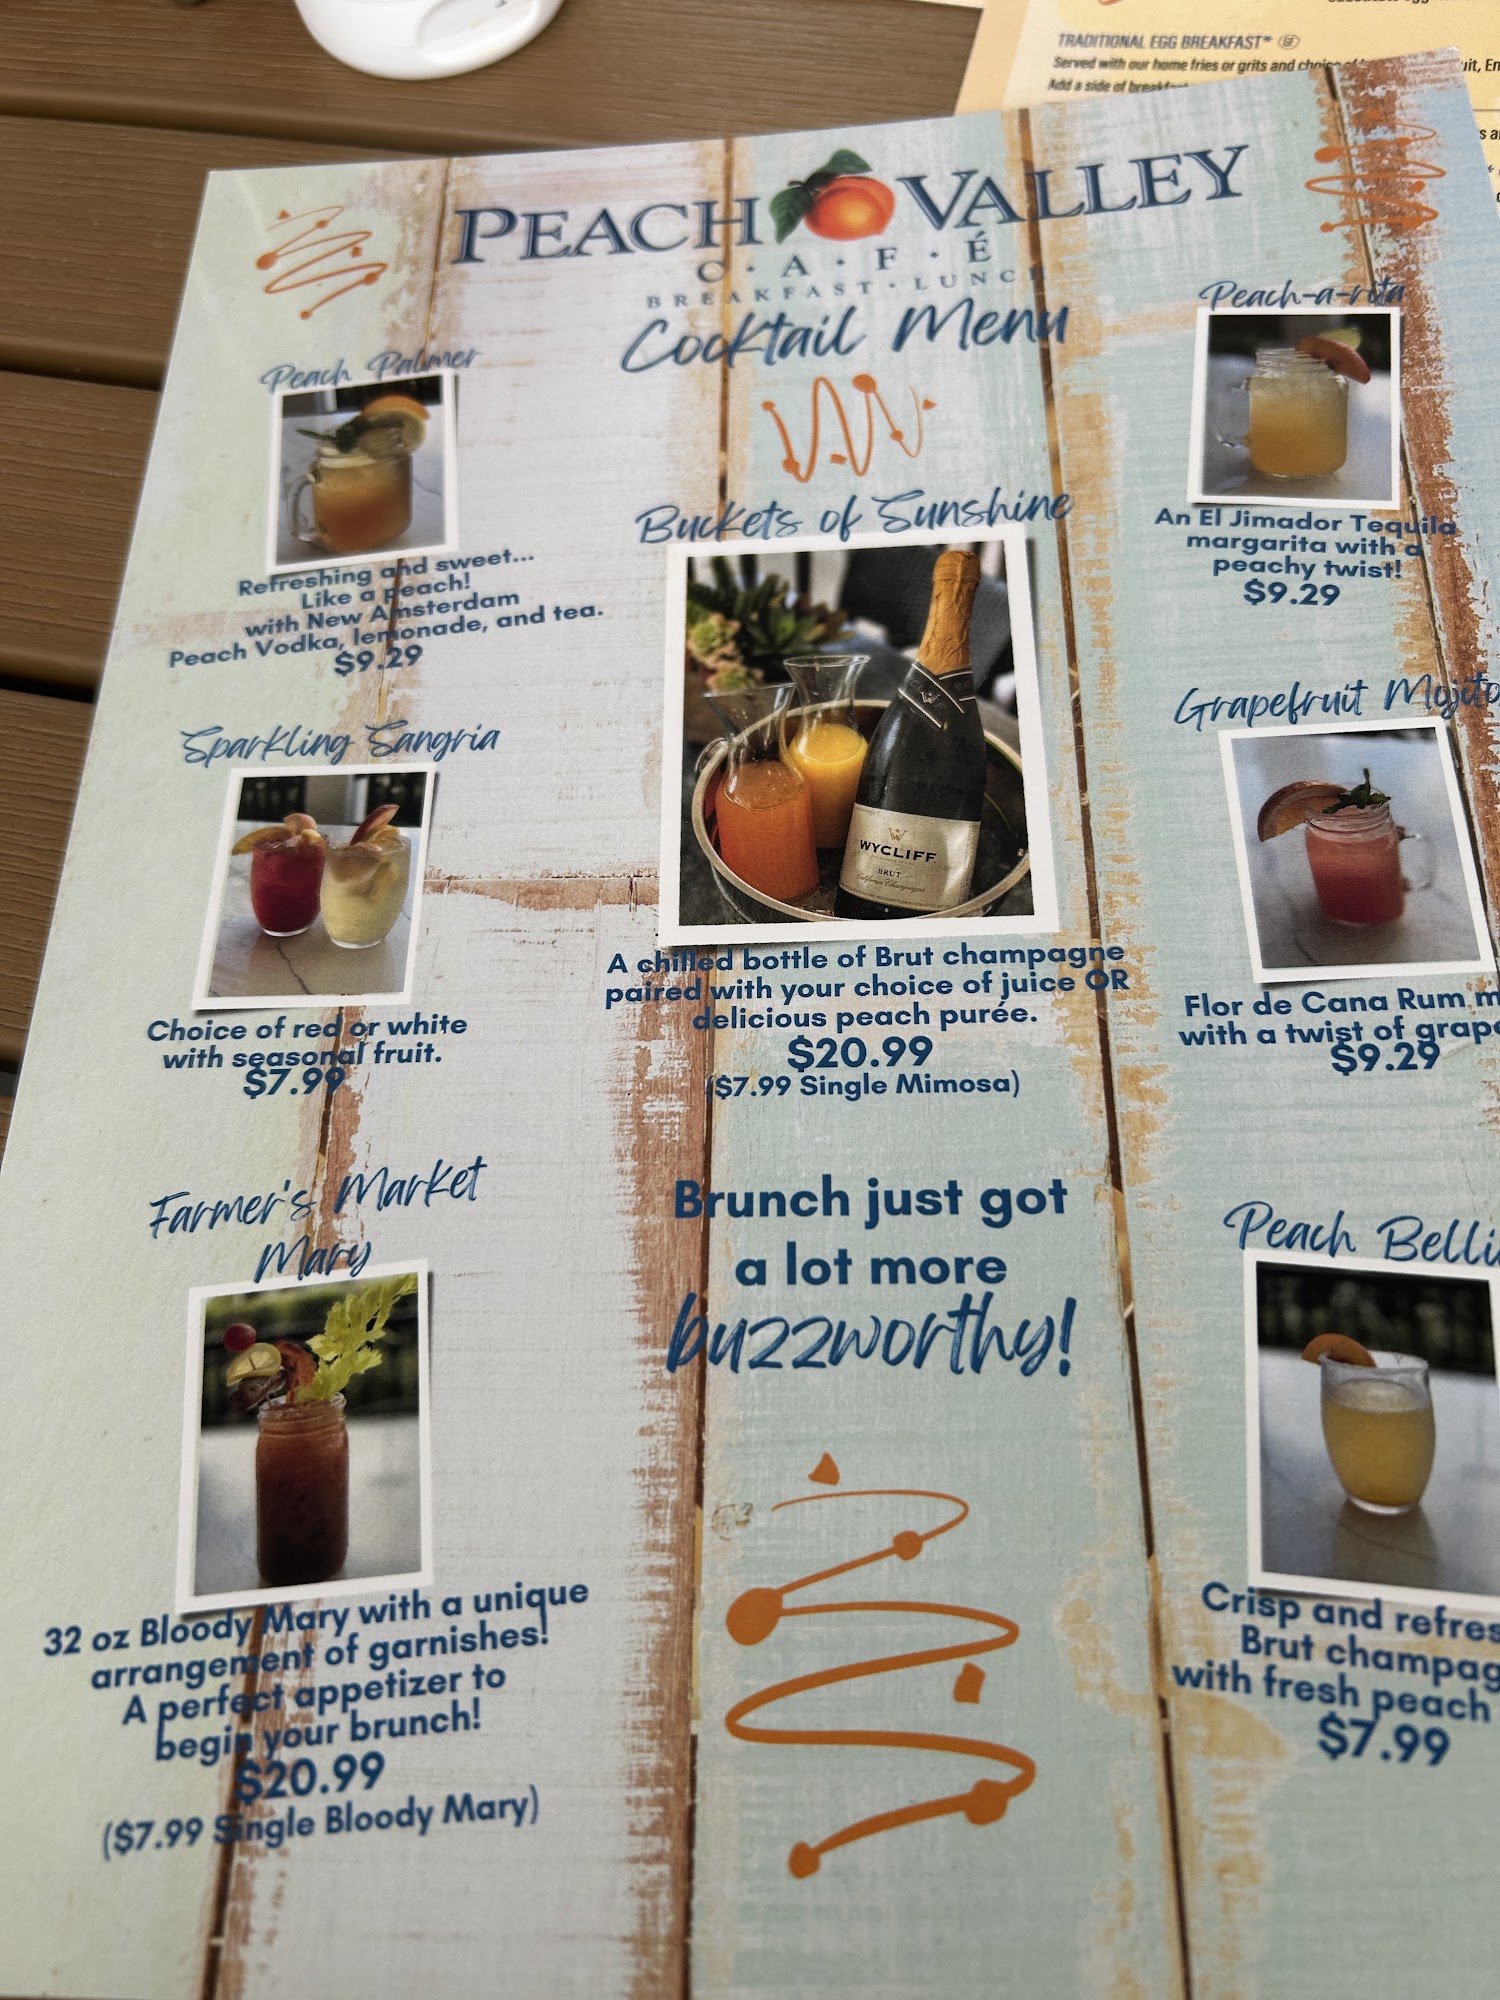 TRADITIONAL EGG BREAKFAST* GF
Served with our home fries or grits and choice of
Add a side of
PEACH VALLEY
C·A·F·É
BREAKFAST·LUNCH
Cocktail Menu
Peach Palmer
Refreshing and sweet...
Like a peach!
with New Amsterdam
Peach Vodka, lemonade, and tea.
$9.29
Sparkling Sangria
Choice of red or white
with seasonal fruit.
$7.99
Farmer's Market
Mary
32 oz Bloody Mary with a unique
arrangement of garnishes!
A perfect appetizer to
begin your brunch!
$20.99
($7.99 Single Bloody Mary)
Buckets of Sunshine
W
WYCLIFF
BRUT
California Champagne
A chilled bottle of Brut champagne
paired with your choice of juice OR
delicious peach purée.
$20.99
($7.99 Single Mimosa)
Brunch just got
a lot more
buzzworthy!
Peach-a-rita
An El Jimador Tequila
margarita with a
peachy twist!
$9.29
Grapefruit Mojito
Flor de Cana Rum m
with a twist of grape
$9.29
Peach Belli
Crisp and refres
Brut champag
with fresh peach
$7.99